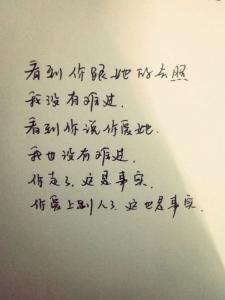 看到你跟她的合照
我没有难过.
看到你说你爱她.
我也没有难过.
你走了.这是事实.
你爱上别人了.这也是事实.